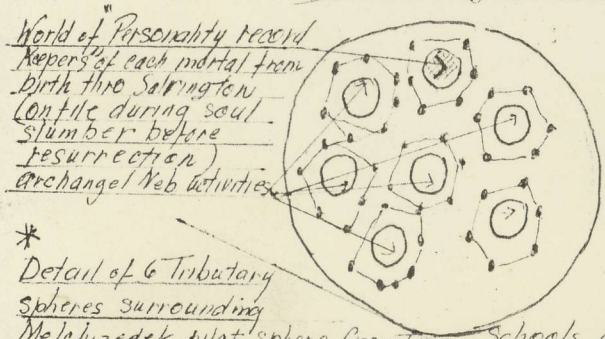 World of "Personality record
Keepers" of each mortal from
birth thro Salvington
(on file during soul
slumber before
resurrection)
Archangel Neb activities
*
Detail of 6 Tributary
spheres surrounding
Melchizedek pilot sphere Schools